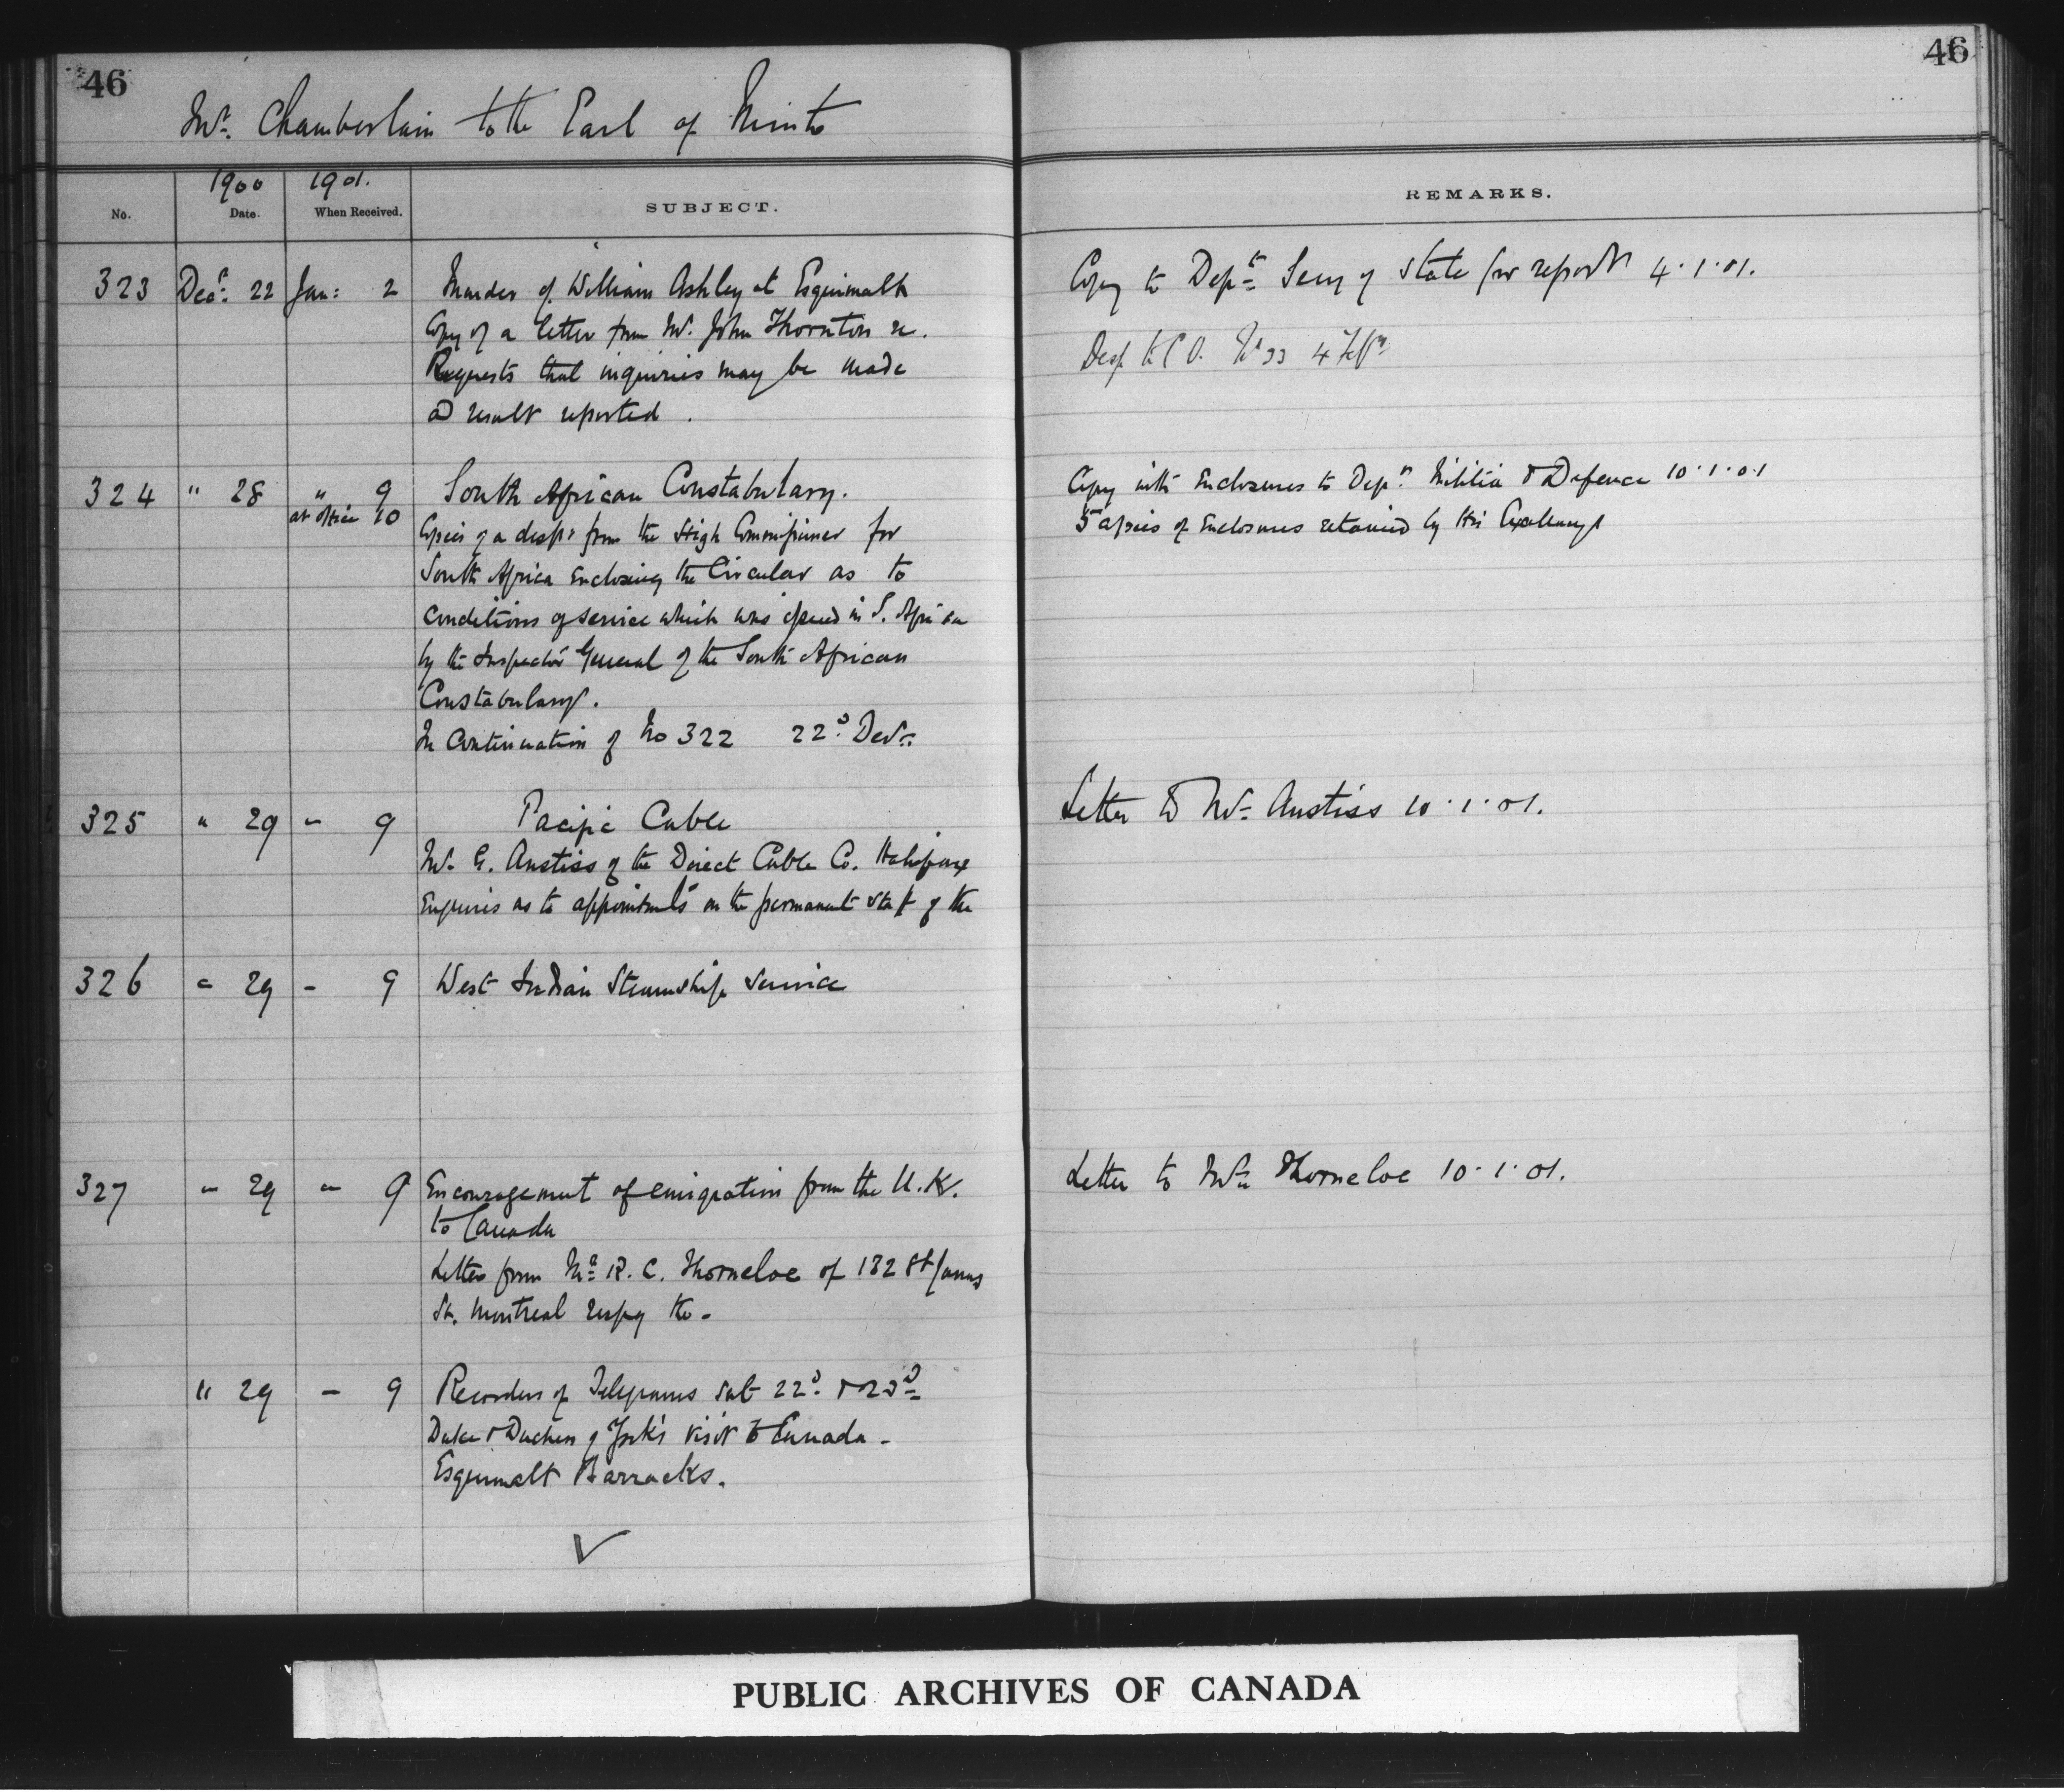 46
46
Mr. Chamberlain to the Earl of Minto
1900 1901.
No. Date. When Received. SUBJECT. REMARKS.
323 Decr. 22 Jan: 2 Murder of William Ashley at Esquimalt
Copy of a letter from Mr. John Thornton re.
Requests that inquiries may be made
and result reported.
Copy to Dept. Secy of State for report 4.1.01.
Desp to C.O. No 33 4
324 " 28 " 9 South African Constabulary.
at office 10
Copies of a desp: from the High Commissioner for
South Africa Enclosing the Circular as to
conditions of service which was issued in S. Africa
by the Inspector General of the South African
Constabulary.
In Continuation of No 322 22d. Decr.
Copy with Enclosures to Dept. Militia & Defence 10.1.01
5 copies of Enclosures retained by His Excellency
325 " 29 " 9 Pacific Cable
Mr. E. Anstiss of the Direct Cable Co. Halifax
Enquires as to appointmts on the permanent staff of the
Letter to Mr. Anstiss 10.1.01.
326 " 29 - 9 West Indian Steamship Service
327 " 29 " 9 Encouragement of emigration from the U.K.
to Canada
Letter from Mr. R. C. Thorneloe of 132 St James
St. Montreal respg the -
Letter to Mr. Thorneloe 10.1.01.
" 29 - 9 Recorders of Telegrams sent 22d. & 23d
Duke & Duchess of York's visit to Canada -
Esquimalt Barracks.
PUBLIC ARCHIVES OF CANADA